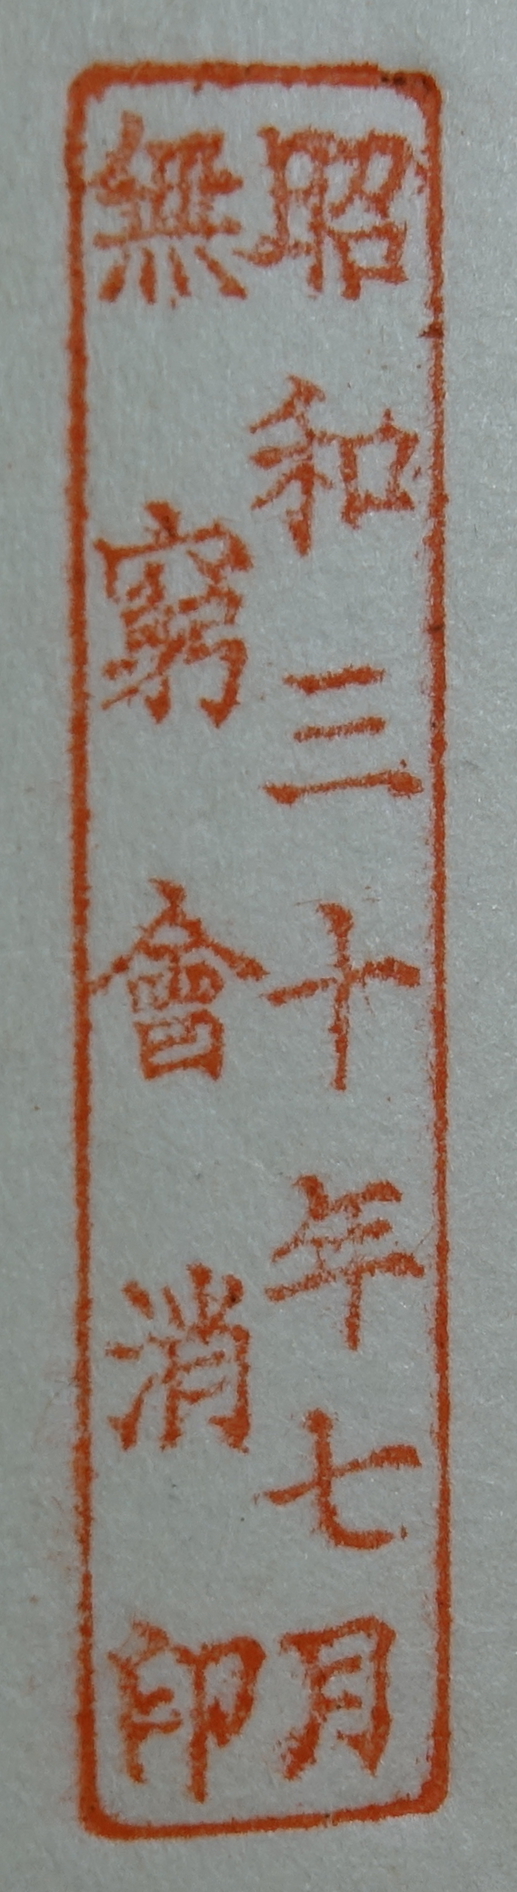 昭和三十年七月
無窮會消印